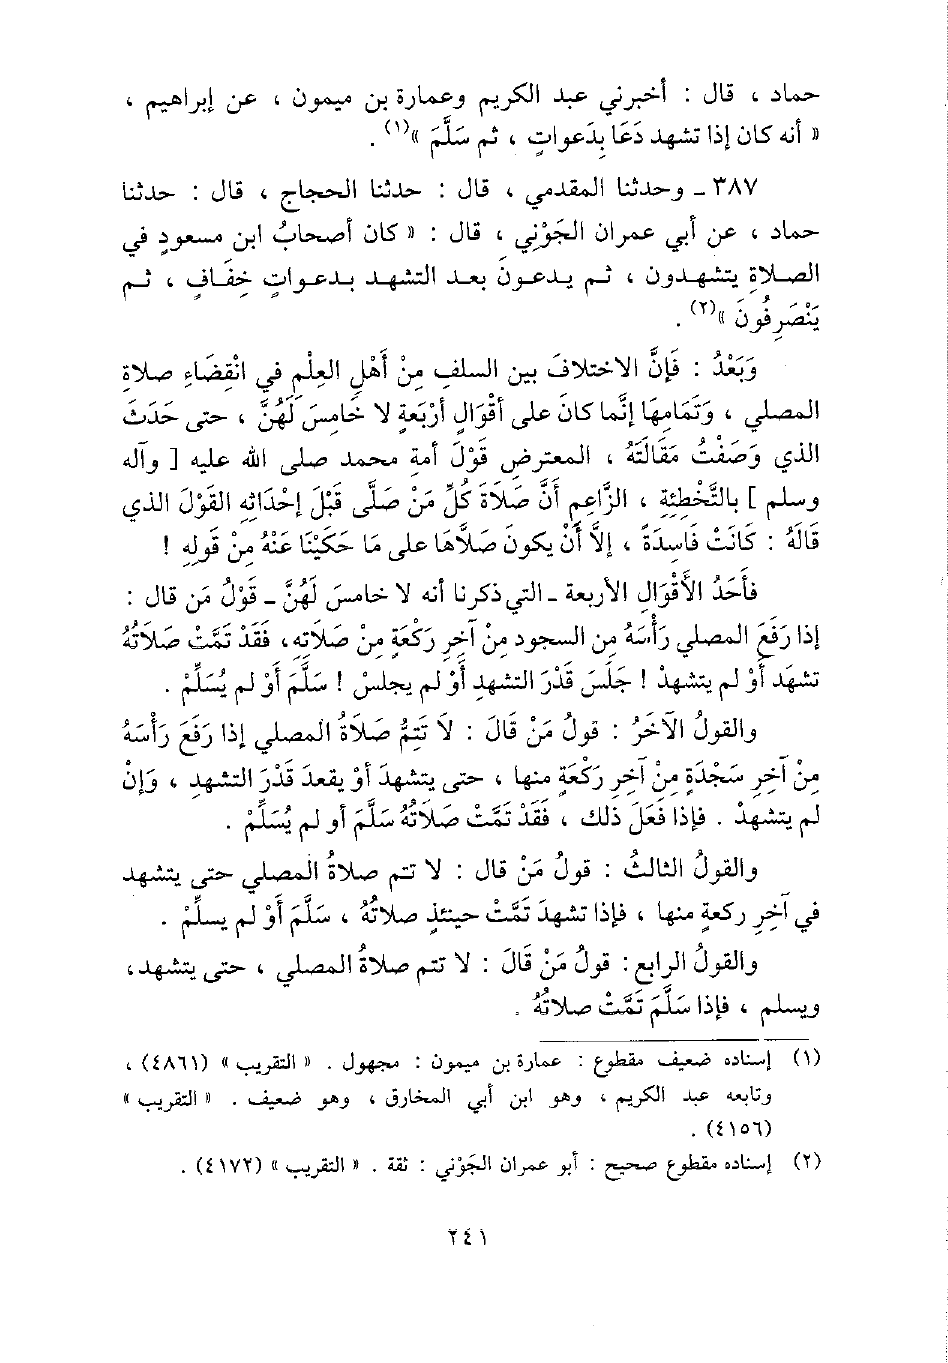 حماد ، قال : أخبرني عبد الكريم وعمارة بن ميمون ، عن إبراهيم ،
« أنه كان إذا تشهد دَعَا بِدَعواتٍ ، ثم سَلَّمَ »(١) .
٣٨٧ ـ وحدثنا المقدمي ، قال : حدثنا الحجاج ، قال : حدثنا
حماد ، عن أبي عمران الجَوْني ، قال : « كان أصحابُ ابن مسعودٍ في
الصلاةِ يتشهدون ، ثم يدعونَ بعد التشهد بدعواتٍ خِفَافٍ ، ثم
يَنْصَرِفُونَ »(٢) .
وَبَعْدُ : فَإنَّ الاختلافَ بين السلفِ مِنْ أَهْلِ العِلْمِ في انْقِضَاءِ صلاةِ
المصلي ، وَتَمَامِهَا إنَّما كانَ على أقْوالٍ أرْبَعةٍ لا خَامِسَ لَهُنَّ ، حتى حَدَثَ
الذي وَصَفْتُ مَقَالَتَهُ ، المعترض قَوْلَ أمةِ محمد صلى الله عليه [ وآله
وسلم ] بالتَّخْطِئِةِ ، الزَّاعِم أَنَّ صَلَاةَ كُلِّ مَنْ صَلَّى قَبْلَ إحْدَاثِهِ القَوْلَ الذي
قَالَهُ : كَانَتْ فَاسِدَةً ، إلاَّ أَنْ يكونَ صَلاَّهَا على مَا حَكَيْنَا عَنْهُ مِنْ قولِهِ !
فأَحَدُ الأَقْوَالِ الأربعة ـ التي ذكرنا أنه لا خامسَ لَهُنَّ ـ قَوْلُ مَن قال :
إذا رَفَعَ المصلي رَأْسَهُ مِن السجودِ مِنْ آخِرِ رَكْعَةٍ مِنْ صَلَاتِهِ، فَقَدْ تَمَّتْ صَلَاتُهُ
تشهَد أَوْ لم يتشهدْ ! جَلَسَ قَدْرَ التشهدِ أَوْ لم يجلسْ ! سَلَّمَ أَوْ لم يُسَلِّمْ .
والقولُ الآخَرُ : قولُ مَنْ قَالَ : لَا تَتِمُّ صَلَاةُ المصلي إذا رَفَعَ رَأْسَهُ
مِنْ آخِرِ سَجْدَةٍ مِنْ آخِرِ رَكْعَةٍ منها ، حتى يتشهدَ أوْ يقعدَ قَدْرَ التشهدِ ، وَإنْ
لم يتشهدْ . فإذا فَعَلَ ذلك ، فَقَدْ تَمَّتْ صَلَاتُهُ سَلَّمَ أو لم يُسَلِّمْ .
والقولُ الثالثُ : قولُ مَنْ قال : لا تتم صلاةُ المصلي حتى يتشهد
في آخِرِ ركعةٍ منها ، فإذا تشهدَ تَمَّتْ حينئذٍ صلاتُهُ ، سَلَّمَ أَوْ لم يسلِّمْ .
والقولُ الرابع : قولُ مَنْ قَالَ : لا تتم صلاةُ المصلي ، حتى يتشهد،
ويسلم ، فإذا سَلَّمَ تَمَّتْ صلاتُهُ .
(١) إسناده ضعيف مقطوع : عمارة بن ميمون : مجهول . « التقريب » (٤٨٦١) ،
وتابعه عبد الكريم ، وهو ابن أبي المخارق ، وهو ضعيف . « التقريب »
(٤١٥٦) .
(٢) إسناده مقطوع صحيح : أبو عمران الجَوْني : ثقة . « التقريب » (٤١٧٢) .
٢٤١